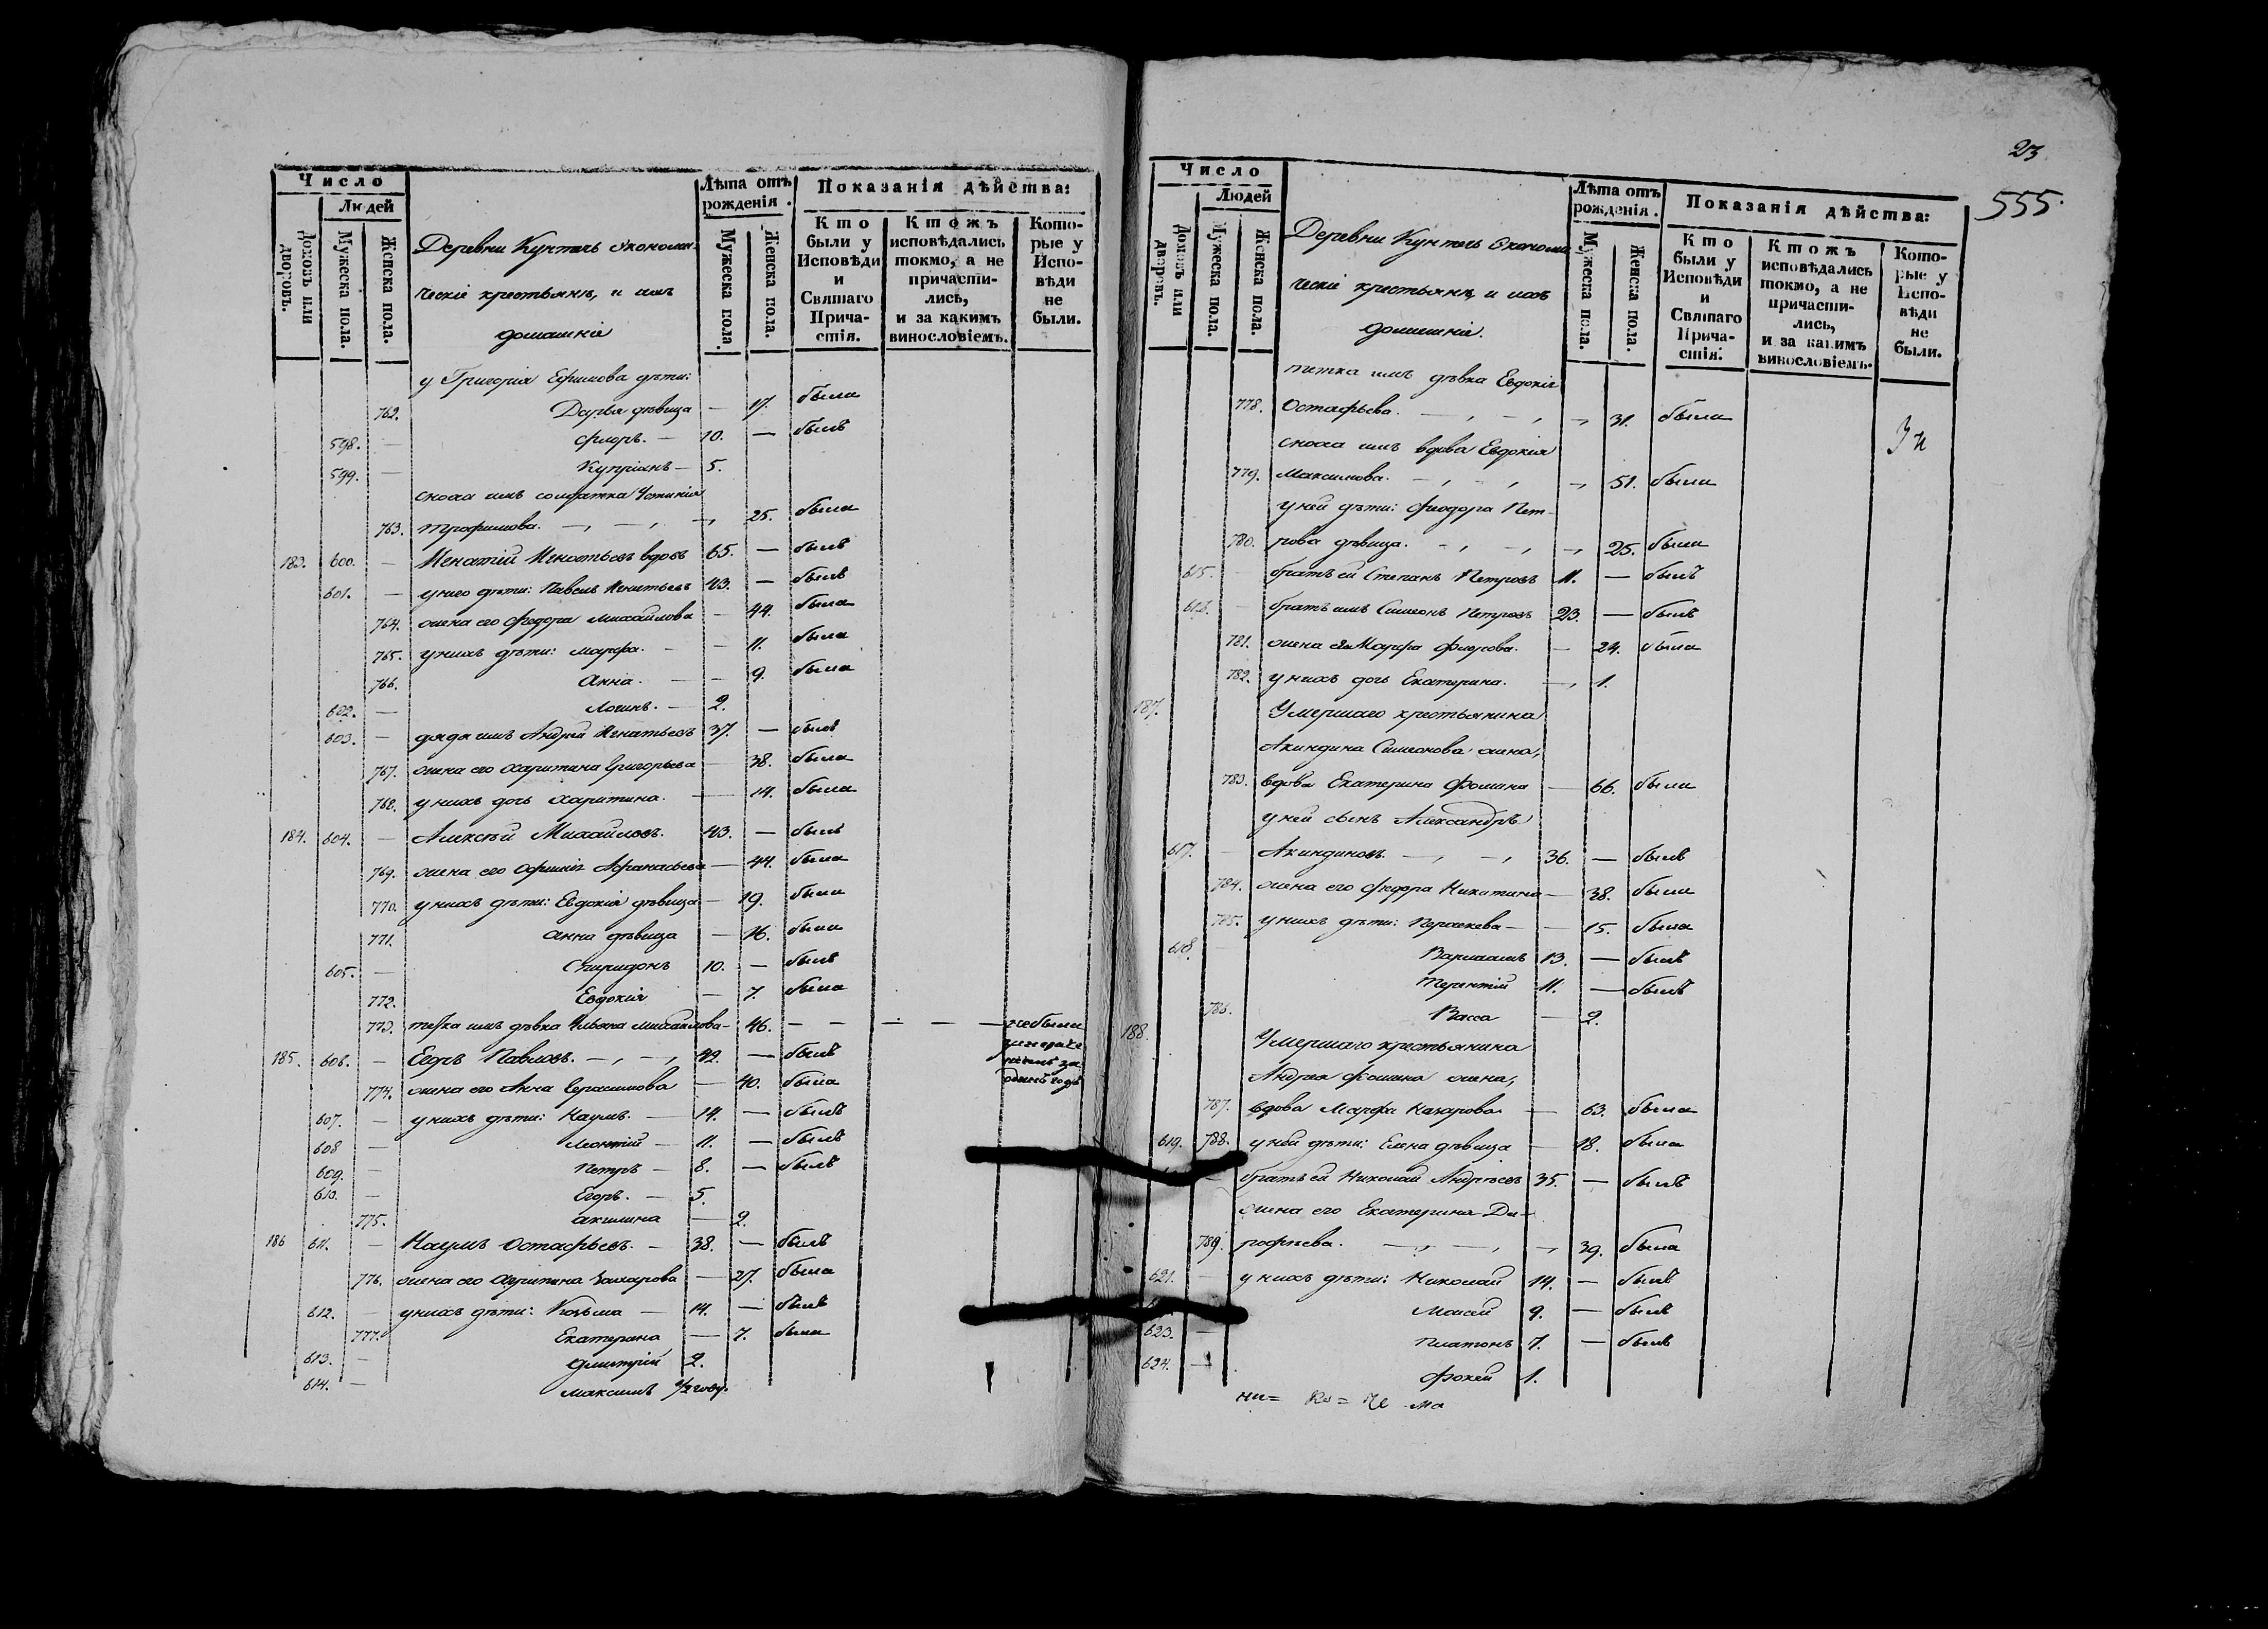 Число
Людей
Домовъ или дворовъ.
Мужеска пола.
Женска пола.
Деревни Кунтечь экономи-
ческіе крестьянѣ, и ихъ
домашніе
Лѣта отъ рожденія.
Мужеска пола.
Женска пола.
Показанія дѣйства:
Кто были у Исповѣди и Святаго Причастія.
Ктожъ исповѣдались токмо, а не причастились, и за какимъ винословіемъ.
Которые у Исповѣди не были.
у Григорія Ефимова дѣти:
762. Дарья дѣвица — 17. была
598. — Флоръ. — 10. — былъ
599. — Купріянъ — 5.
сноха имъ солдатка Устинія
763. Трофимова. 25. была
183. 600. — Игнатій Игнатьевъ вдовъ 65. — былъ
601. — у него дѣти: Павелъ Игнатьевъ 43. — былъ
764. жена его Федора Михайлова — 44. была
765. у нихъ дѣти: Марфа. — 11. была
766. Анна. — 9. была
602. — Логинъ. — 2.
603. — дядя имъ Андрей Игнатьевъ 37. — былъ
767. жена его Харитина Григорьева — 38. была
768. у нихъ дочь Харитина. — 14. была
184. 604. — Алексѣй Михайловъ. 43. — былъ
769. жена его Офимія Афанасьева — 44. была
770. у нихъ дѣти: Евдокія дѣвица — 19. была
771. Анна дѣвица — 16. была
605. — Спиридонъ 10. — былъ
772. Евдокія — 7. была
773. тетка имъ дѣвка Ульяна Михайлова — 46. — — — — — не была
185. 606. — Егоръ Павловъ. 42. — былъ
774. жена его Анна Герасимова — 40. была
одинъ годъ
607. — у нихъ дѣти: Наумъ. — 14. — былъ
608 — Леонтій — 11. — былъ
609. — Петръ — 8. — былъ
610. — Егоръ. — 5.
775. Акилина — 2.
186 611. — Наумъ Остафьевъ. — 38. — былъ
776. жена его Харитина Захарова — 27. была
612. — у нихъ дѣти: Козьма — 14. — былъ
777. Екатерина — 7. была
613. — Дмитрій 2.
614. — Максимъ 1/2 году.
23
555.
Число
Людей
Домовъ или дворовъ.
Мужеска пола.
Женска пола.
Деревни Кунтечь экономи-
ческіе крестьянѣ, и ихъ
домашніе.
Лѣта отъ рожденія.
Мужеска пола.
Женска пола.
Показанія дѣйства:
Кто были у Исповѣди и Святаго Причастія.
Ктожъ исповѣдались токмо, а не причастились, и за какимъ винословіемъ.
Которые у Исповѣди не были.
тетка имъ дѣвка Евдокія
778. Остафьева. 31. была
сноха имъ вдова Евдокія
779. Максимова. 51. была
у ней дѣти: Феодора Пет-
780. рова дѣвица. 25. была
615. — братъ ей Степанъ Петровъ 11. — былъ
616. — братъ имъ Симеонъ Петровъ 23. — былъ
781. жена его Марфа Флорова. — 24. была
782. у нихъ дочь Екатерина. 1.
187. Умершаго крестьянина
Акиндина Симеонова жена,
783. вдова Екатерина Фомина — 66. была
у ней сынъ Александръ
617. — Акиндиновъ. 36. — былъ
784. жена его Федора Никитина — 38. была
785. у нихъ дѣти: Параскева — 15. была
618. — Варлаамъ 13. — былъ
Терентій 11. — былъ
786. Васса — 2.
188. Умершаго крестьянина
Андрея Фомина жена,
787. вдова Марфа Назарова — 63. была
619. 788. у ней дѣти: Елена дѣвица — 18. была
— братъ ей Николай Андреевъ 35. — былъ
жена его Екатерина До-
789. рофѣева. 39. была
621. — у нихъ дѣти: Николай 14. — былъ
Моисей 9. — былъ
623. — Платонъ 7. — былъ
624. — Фокей 1.